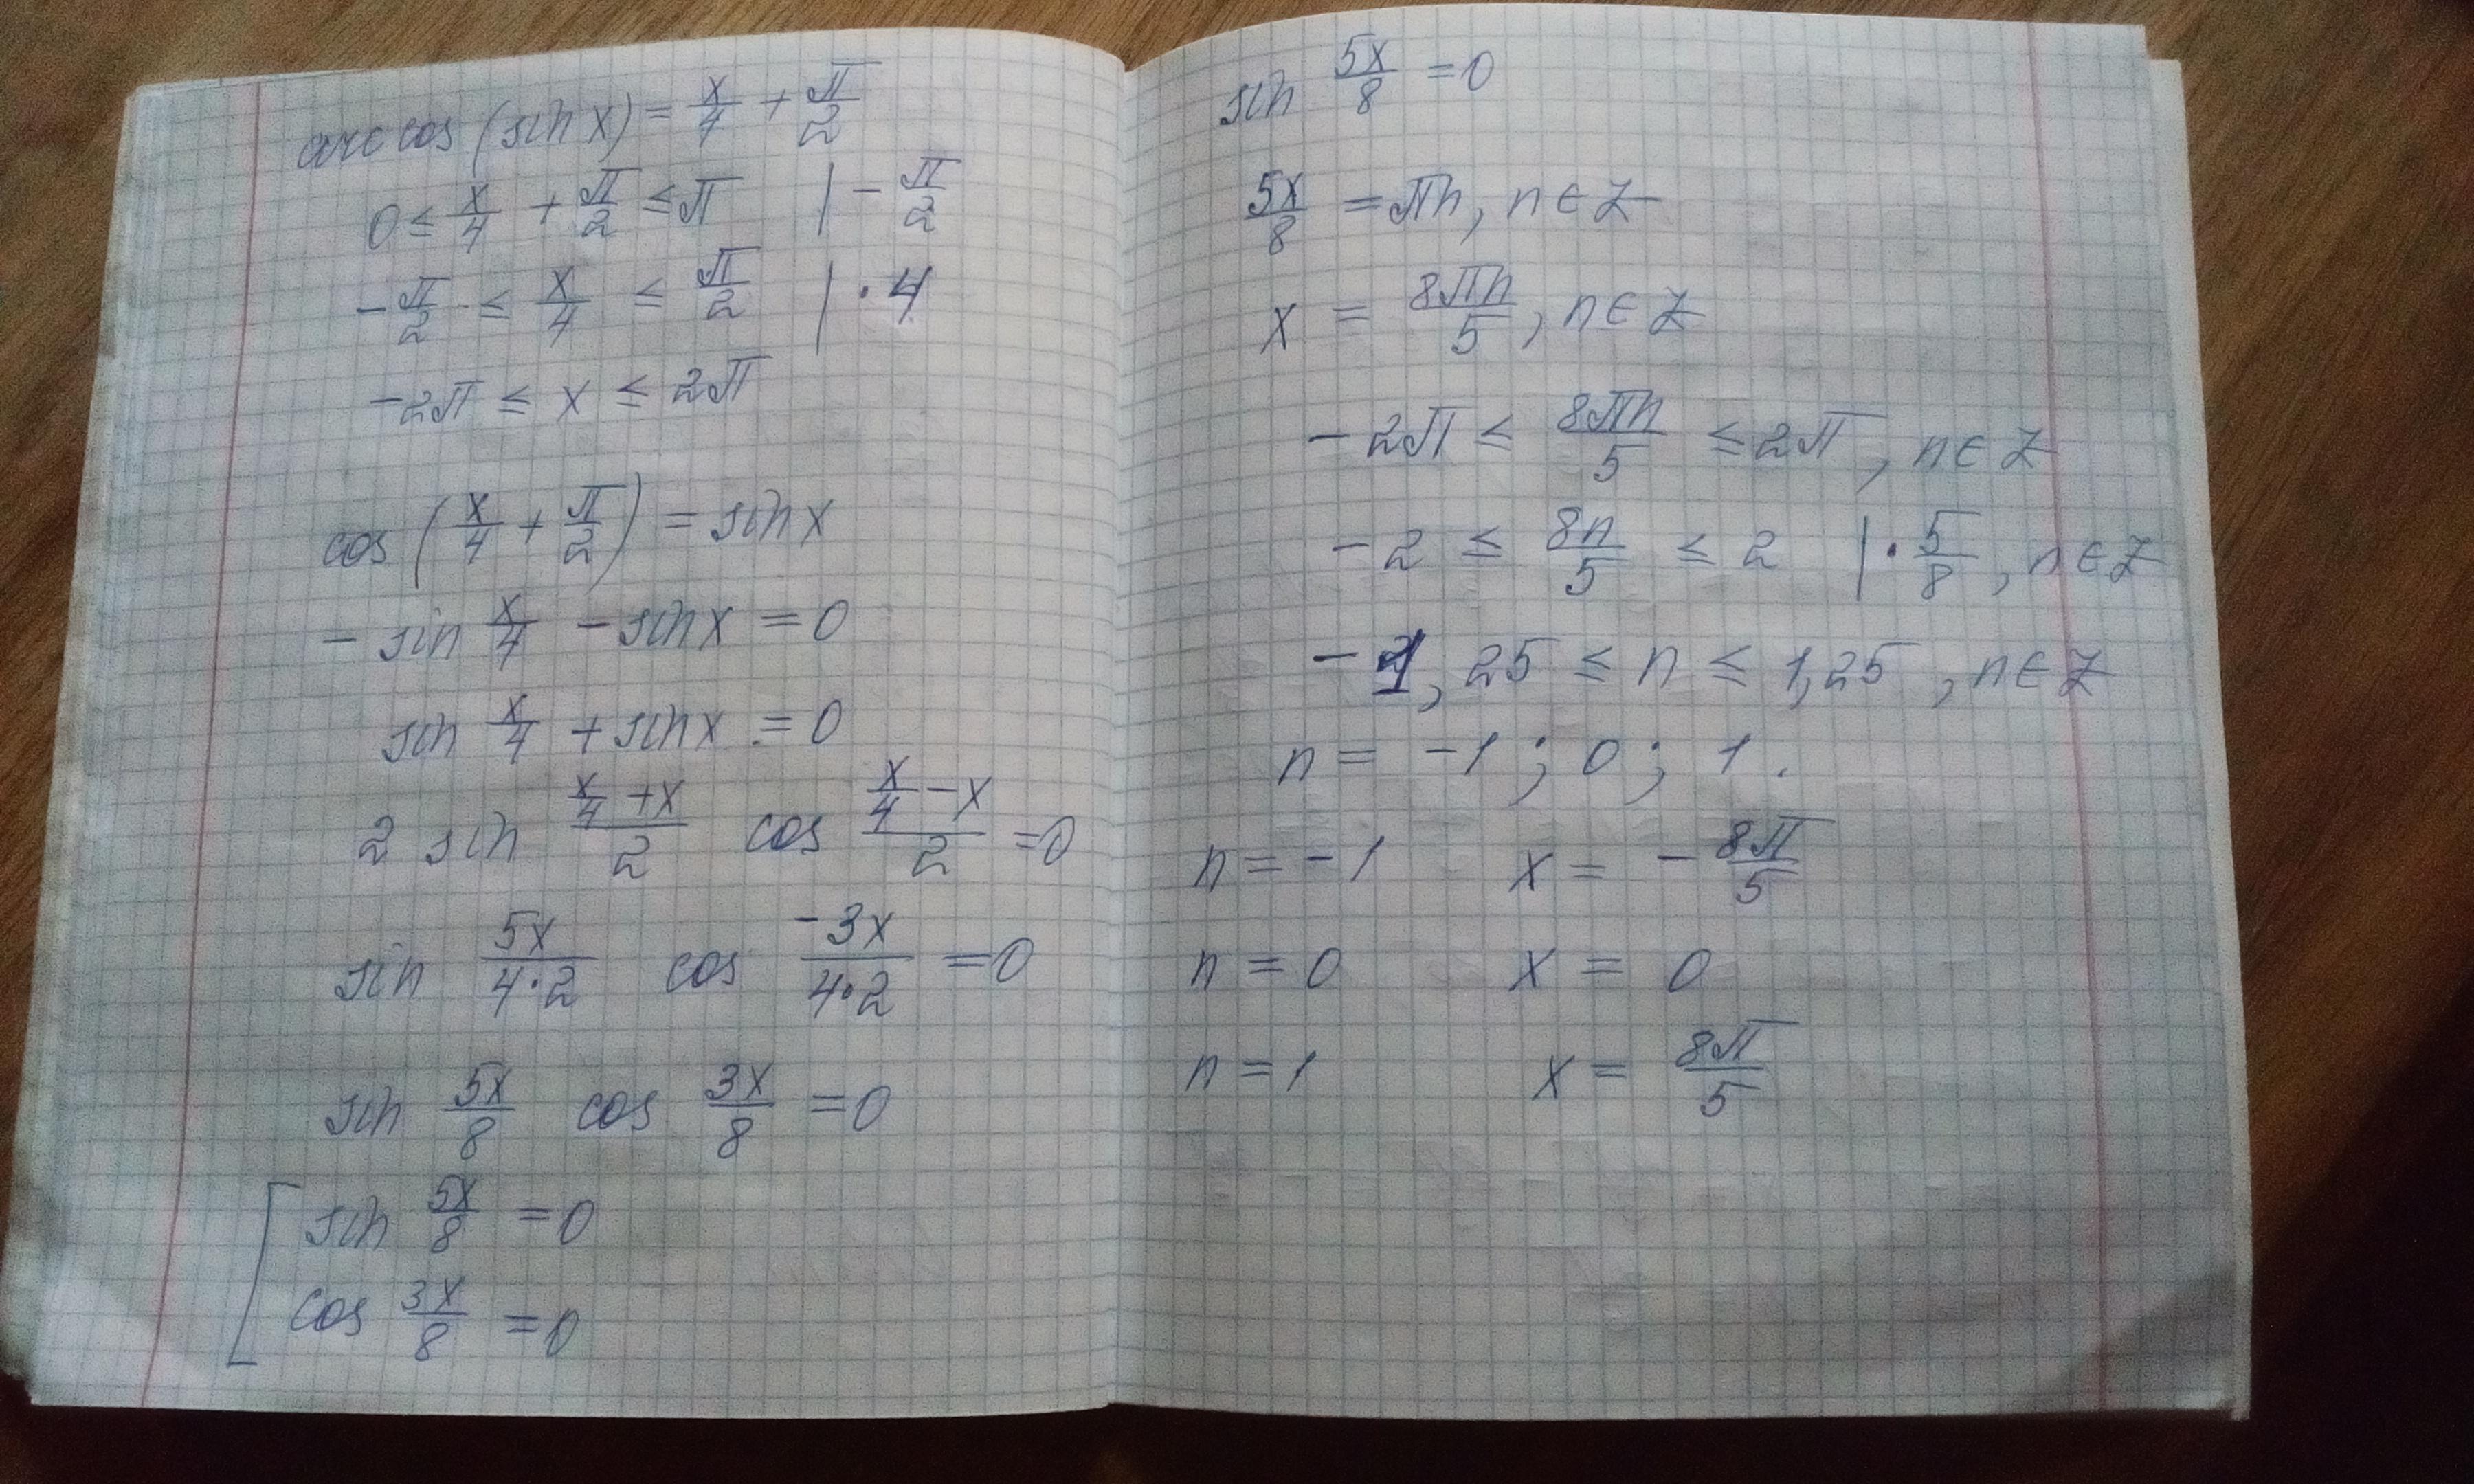 arccos (sin x) = x/4 + π/2
0 ≤ x/4 + π/2 ≤ π | - π/2
- π/2 ≤ x/4 ≤ π/2 | · 4
-2π ≤ x ≤ 2π
cos (x/4 + π/2) = sin x
- sin x/4 - sin x = 0
sin x/4 + sin x = 0
2 sin (x/4 + x)/2 cos (x/4 - x)/2 = 0
sin 5x/(4·2) cos -3x/(4·2) = 0
sin 5x/8 cos 3x/8 = 0
[ sin 5x/8 = 0
cos 3x/8 = 0
sin 5x/8 = 0
5x/8 = πn, n ∈ Z
x = 8πn/5, n ∈ Z
-2π ≤ 8πn/5 ≤ 2π, n ∈ Z
-2 ≤ 8n/5 ≤ 2 | · 5/8, n ∈ Z
-1,25 ≤ n ≤ 1,25, n ∈ Z
n = -1; 0; 1.
n = -1 x = - 8π/5
n = 0 x = 0
n = 1 x = 8π/5